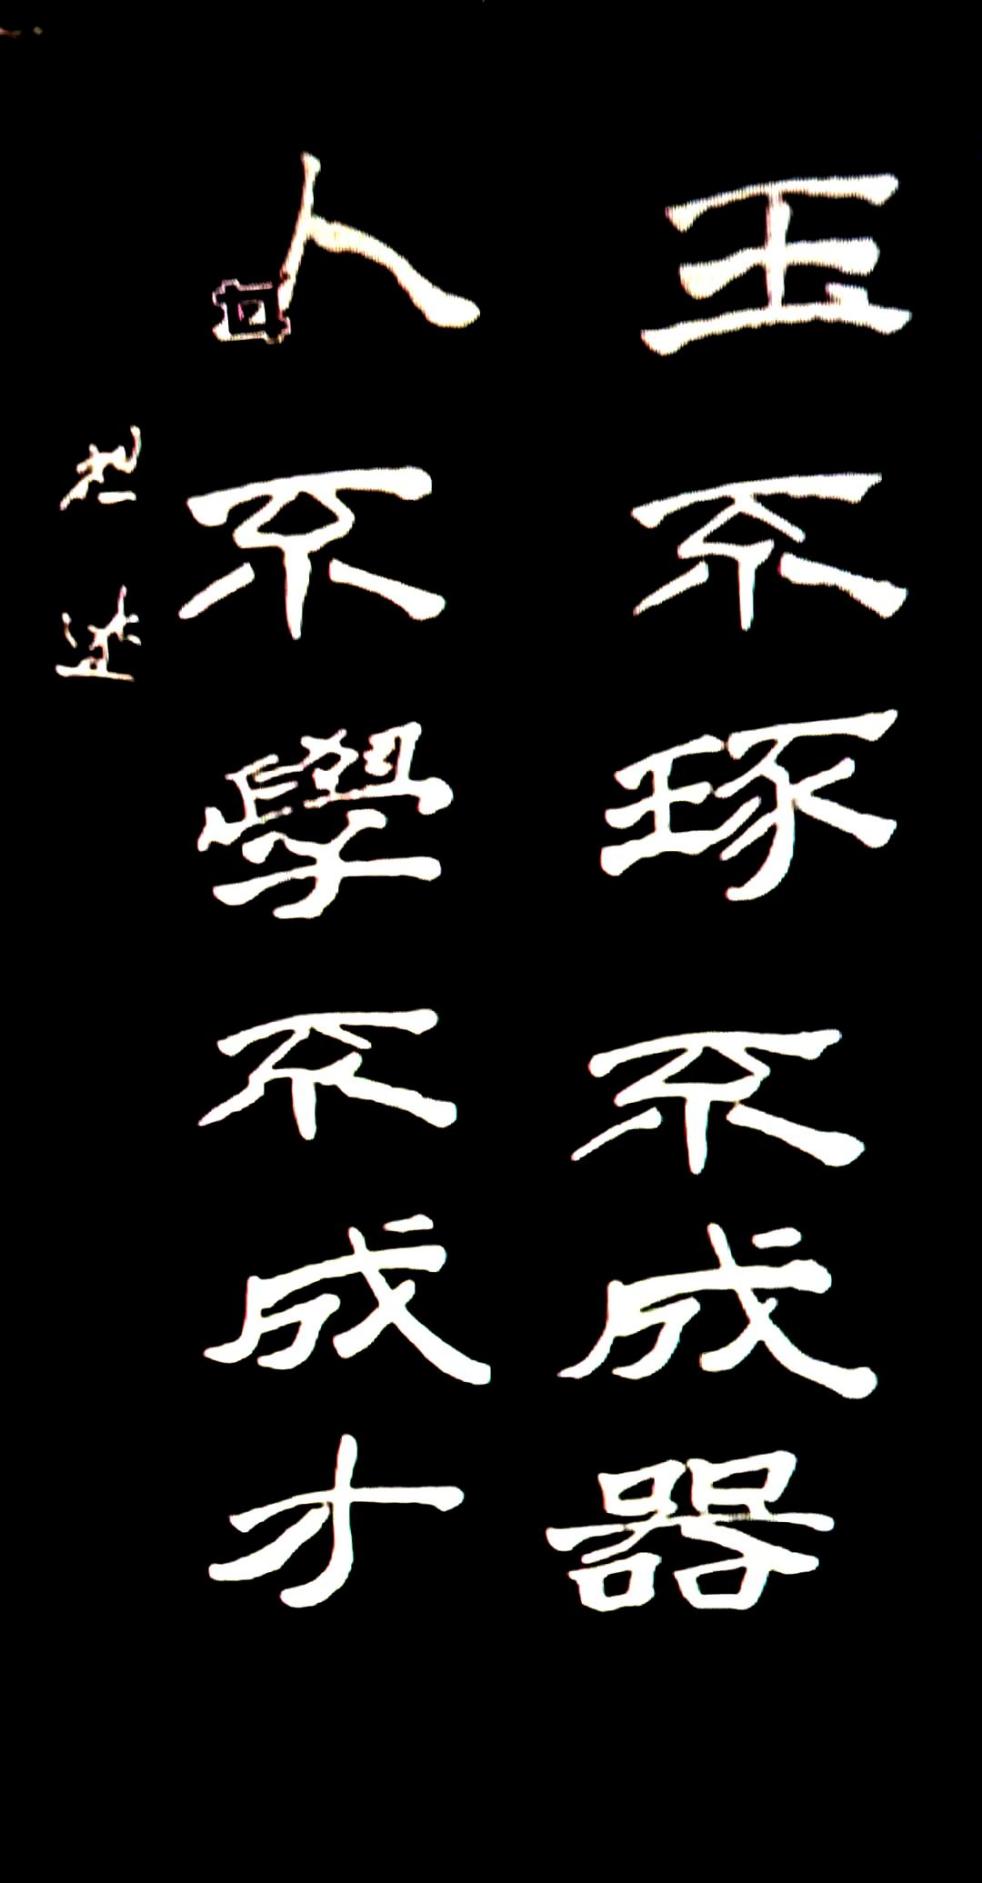 玉不琢不成器
人不學不成才